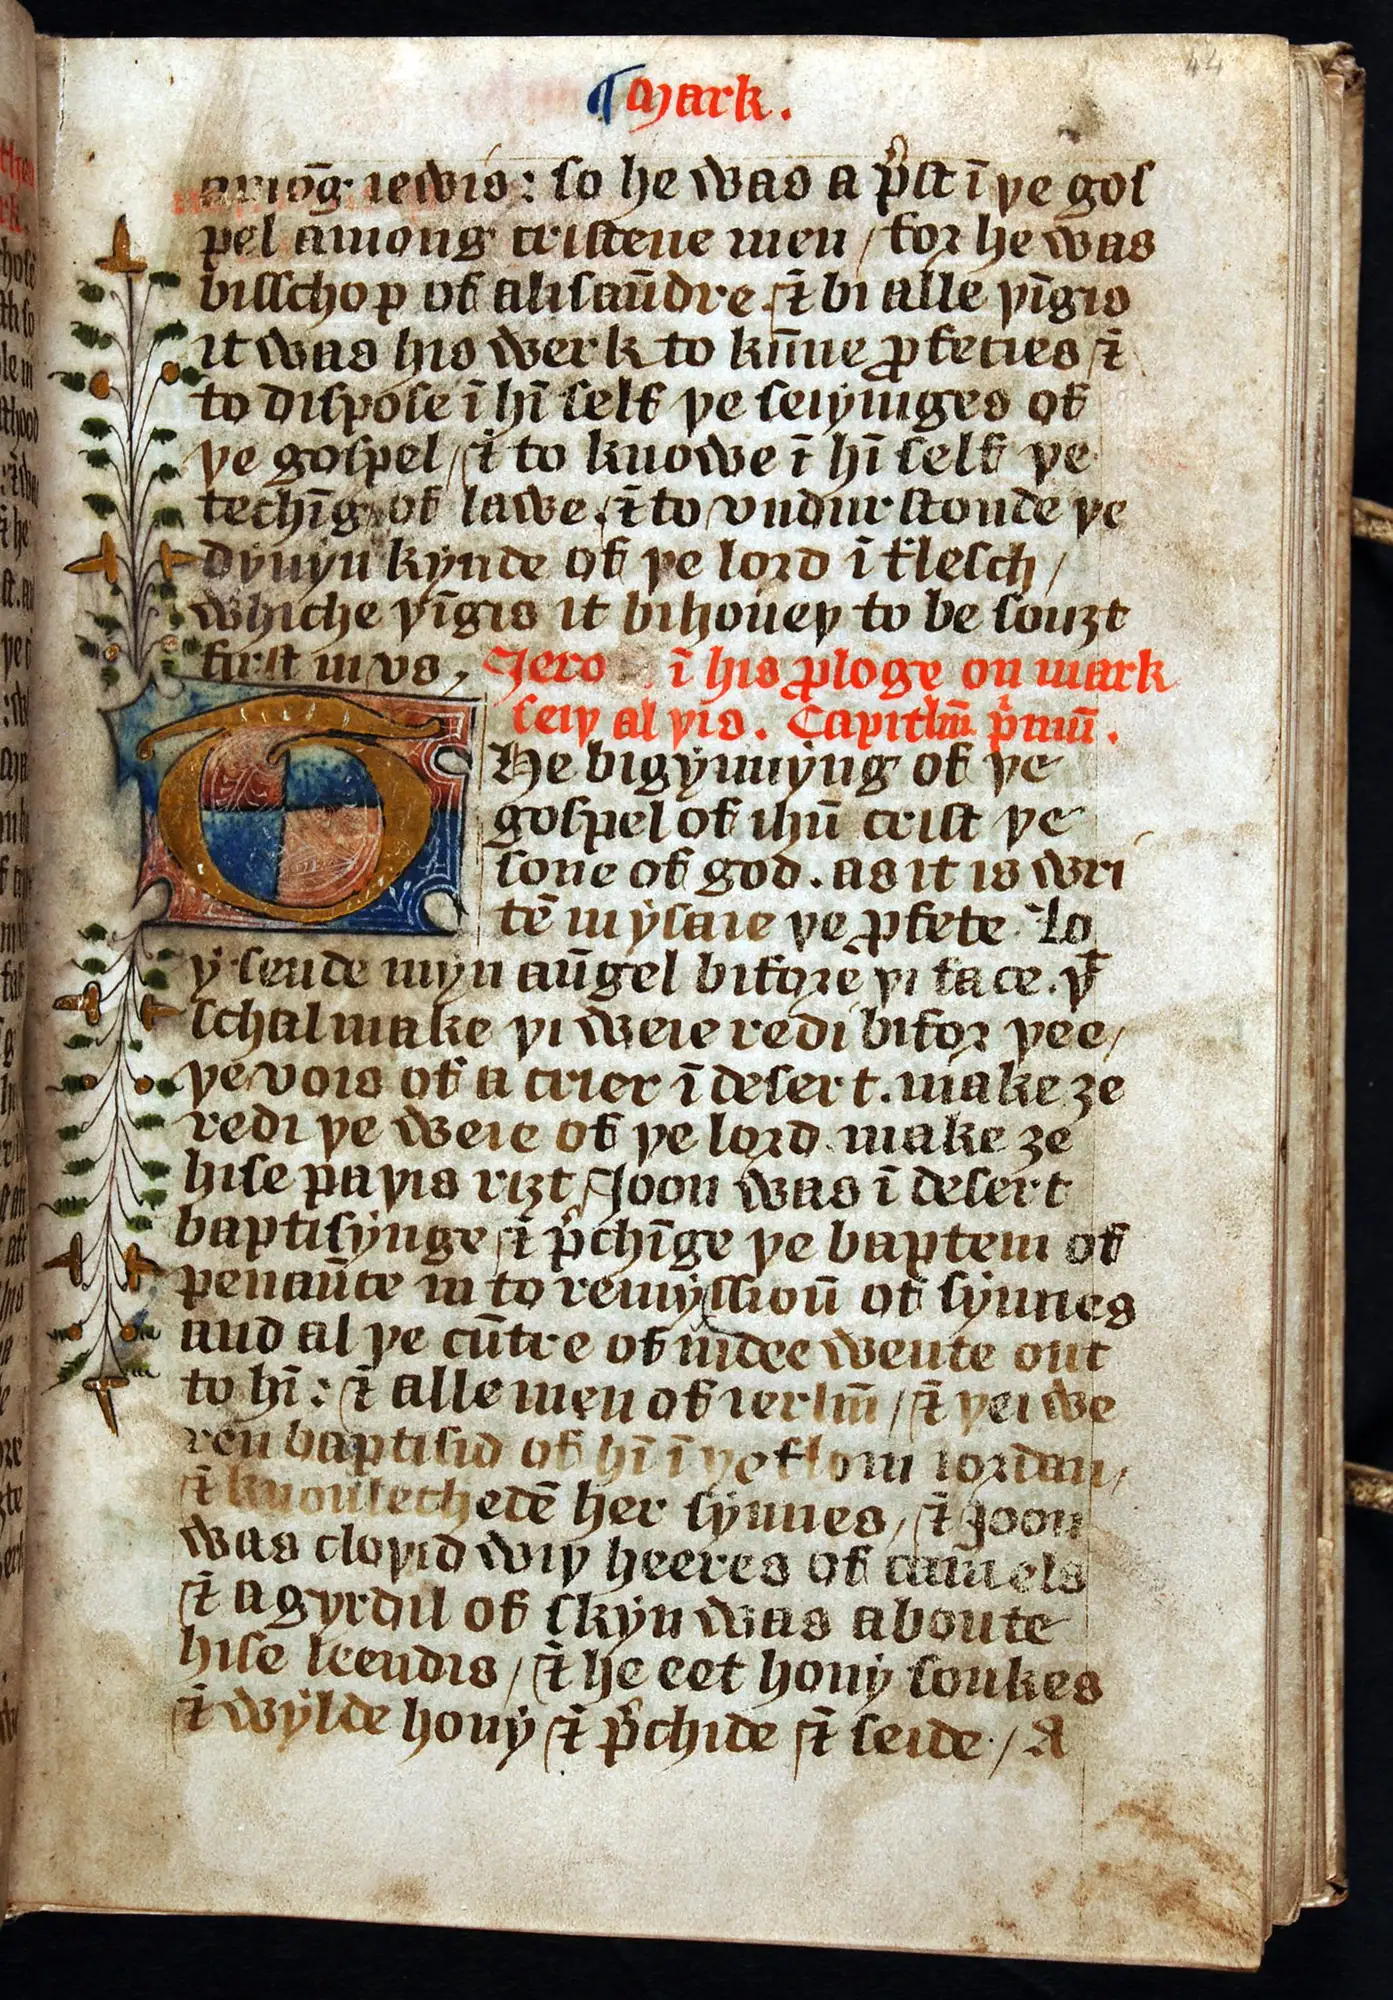 44
¶ Mark.
amōg iewis: so he was a p̉st ī þe gos
pel among cristene men / for he was
bisschop of alisaūdre / ⁊ bi alle þīgis
it was his werk to kūne ꝓfeties / ⁊
to dispose ī hī self þe seiyinges of
þe gospel / ⁊ to knowe ī hī self þe
techīg of lawe / ⁊ to vndurstonde þe
dyuyn kynde of þe lord ī flesch /
whiche þīgis it bihoueþ to be souȝt
first in vs / Jero ī his ꝓloge on mark
seiþ al þis. Capitlm̄ p̉mū.
The bigynnyng of þe
gospel of ihū crist þe
sone of god. as it is wri
tē in ysaie þe ꝓfete. Lo
y sende myn aūgel bifore þi face. þͭ
schal make þi weie redi bifor þee /
þe vois of a crier ī desert. make ȝe
redi þe weie of þe lord make ȝe
hise paþis riȝt / Joon was ī desert
baptisynge / ⁊ p̉chīge þe baptem of
penaūce in to remyssioū of synnes
and al þe cūtre of iudee wente out
to hī: ⁊ alle men of ierlm̄ / ⁊ þei we
ren baptisid of hī ī þe flom iordan /
⁊ knoulechedē her synnes / ⁊ Joon
was cloþid wiþ heeres of camels
⁊ a gyrdil of skyn was aboute
hise leendis / ⁊ he eet hony soukes
⁊ wylde hony ⁊ p̉chide / ⁊ seide. / A